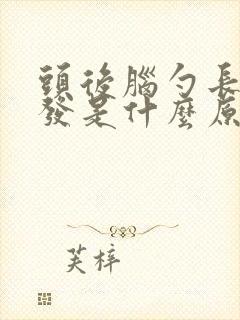 頭後腦勺長
發是什麼原
芙梓